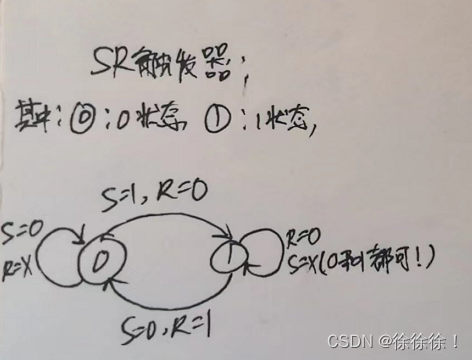 SR触发器;
其中:⓪:0状态, ①:1状态,
S=1, R=0
S=0
R=X
0
1
R=0
S=X(0和1都可!)
S=0,R=1
CSDN @徐徐徐!